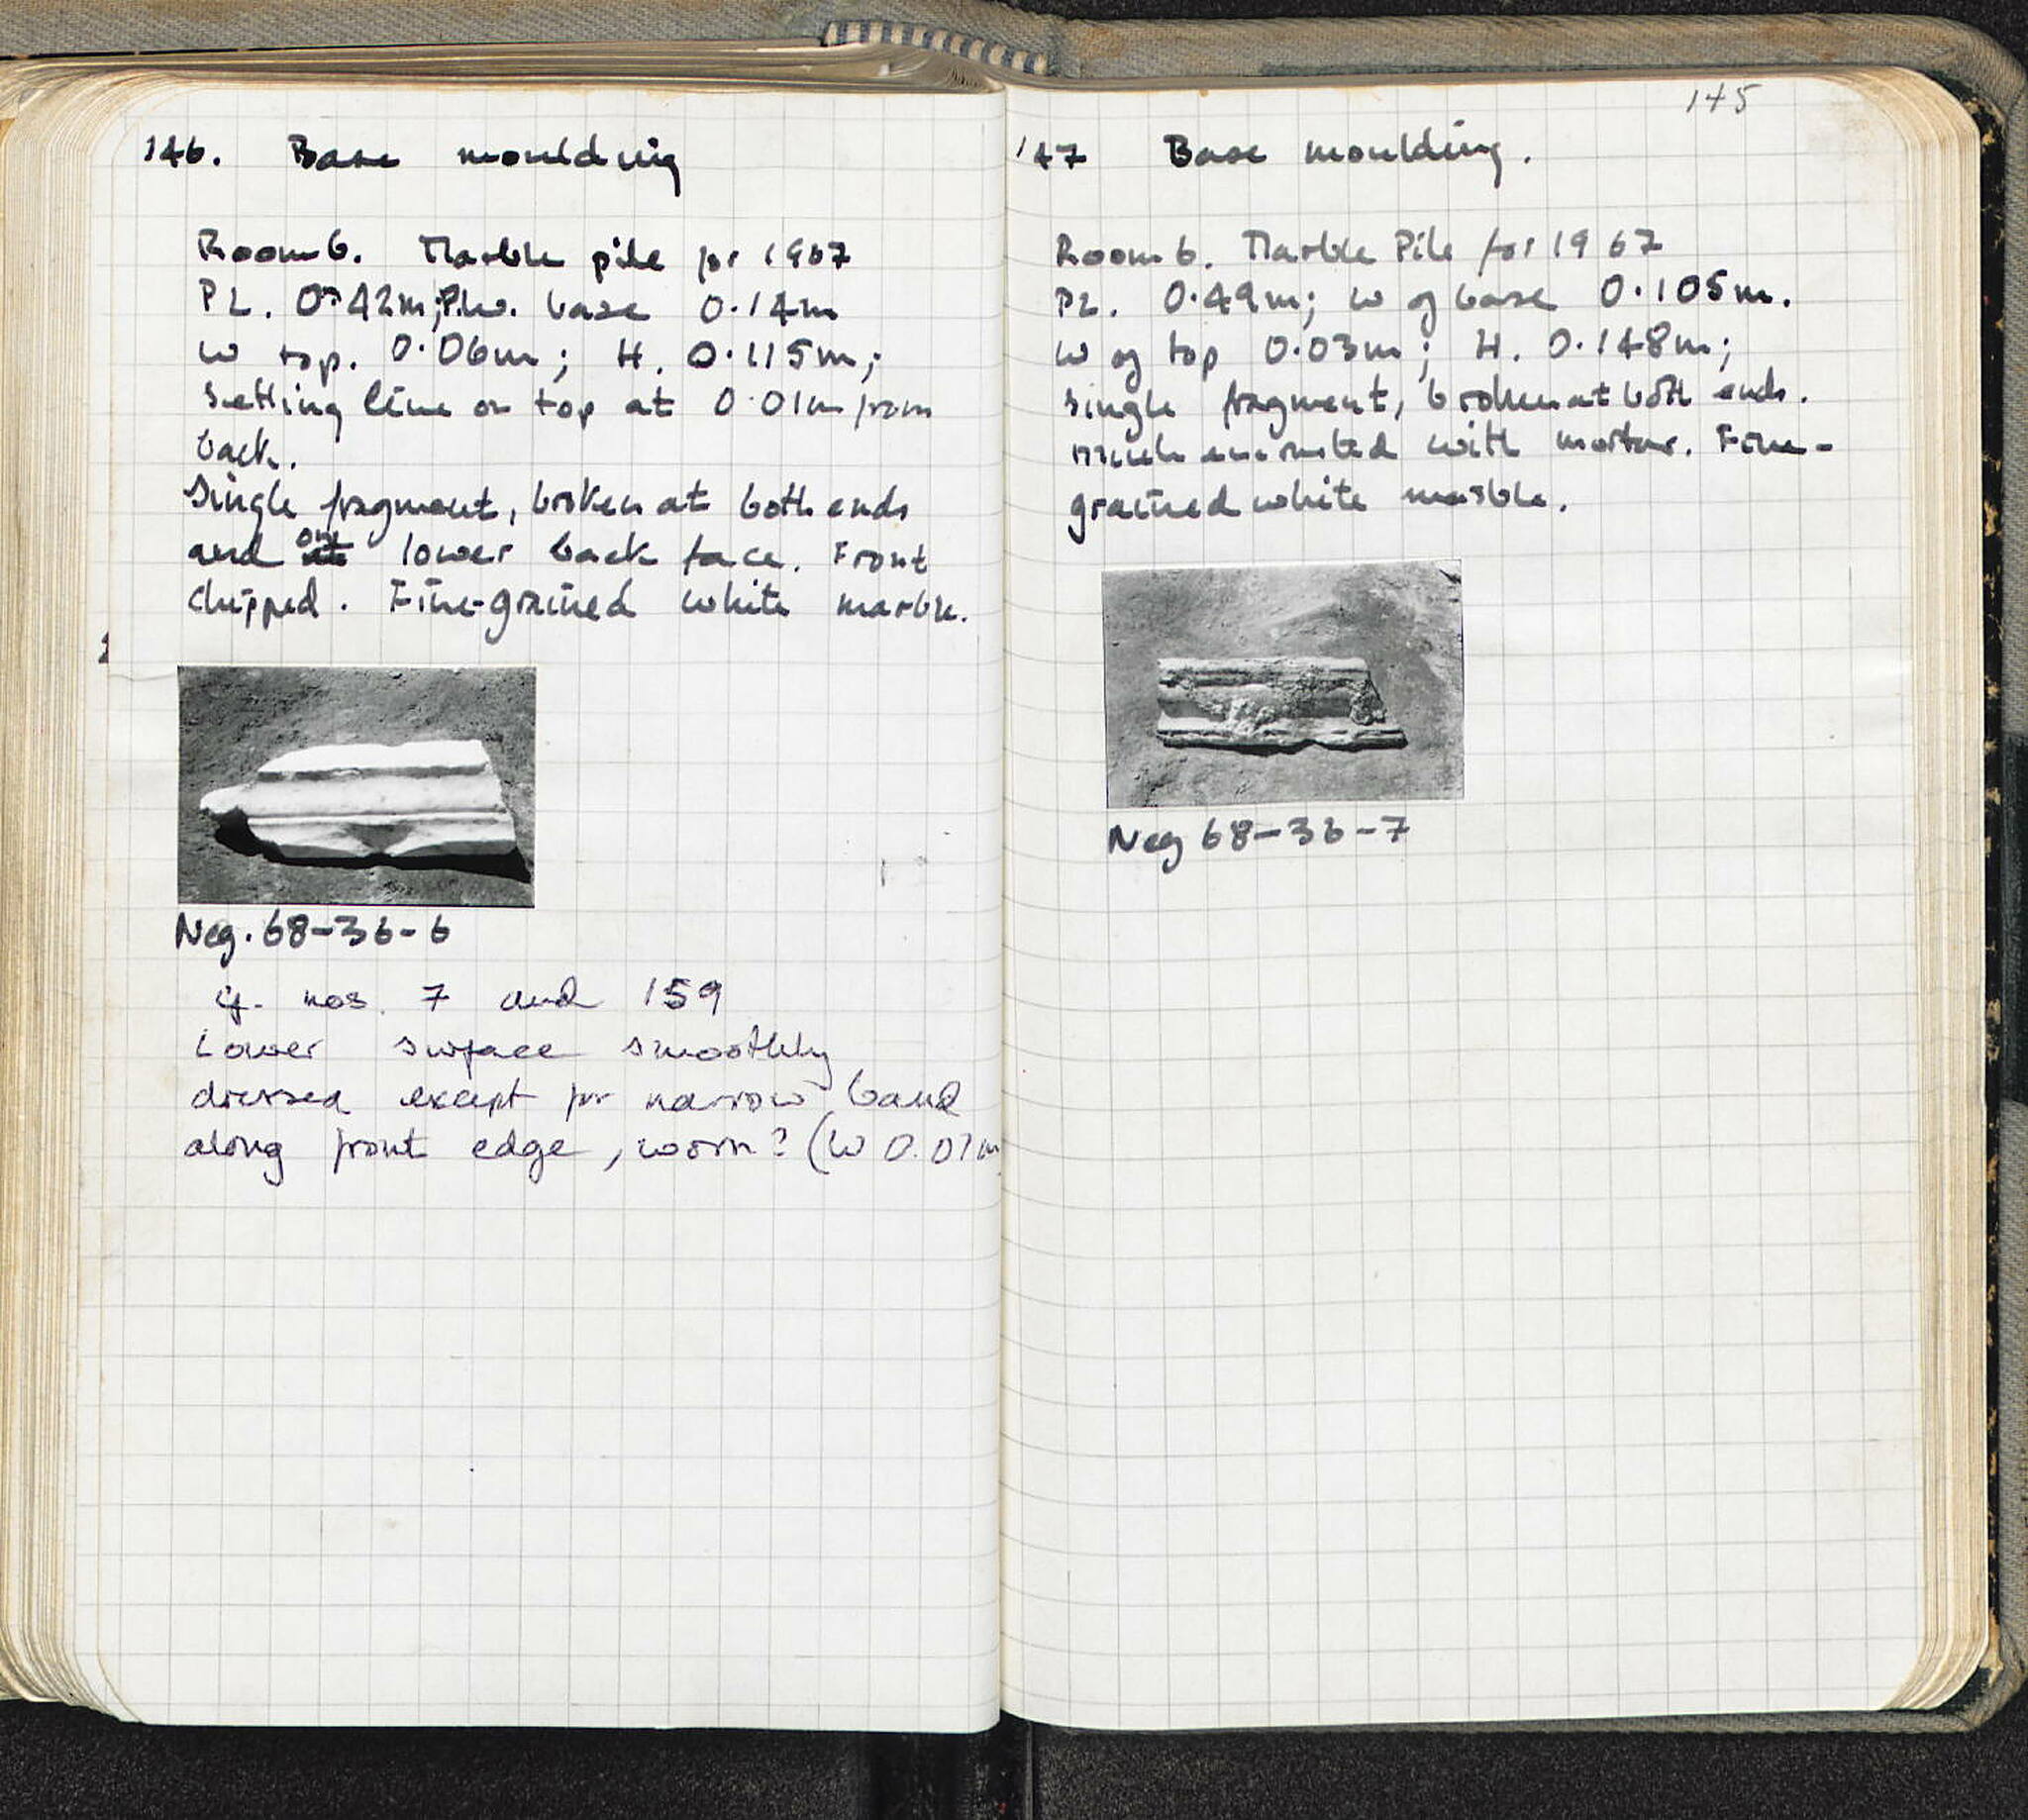 146. Base moulding
Room 6. Marble pile for 1967
PL. 0.42m; P.W. base 0.14m
W top. 0.06m; H. 0.115m;
Setting line on top at 0.01m from
back.
Single fragment, broken at both ends
and on lower back face. Front
chipped. Fine-grained white marble.
Neg. 68-36-6
cf. nos. 7 and 159
Lower surface smoothly
dressed except for narrow band
along front edge, worn? (W 0.01m
145
147 Base moulding.
Room 6. Marble Pile for 1967
PL. 0.49m; W of base 0.105m.
W of top 0.03m; H. 0.148m;
Single fragment, broken at both ends.
much encrusted with mortar. Fine-
grained white marble.
Neg 68-36-7